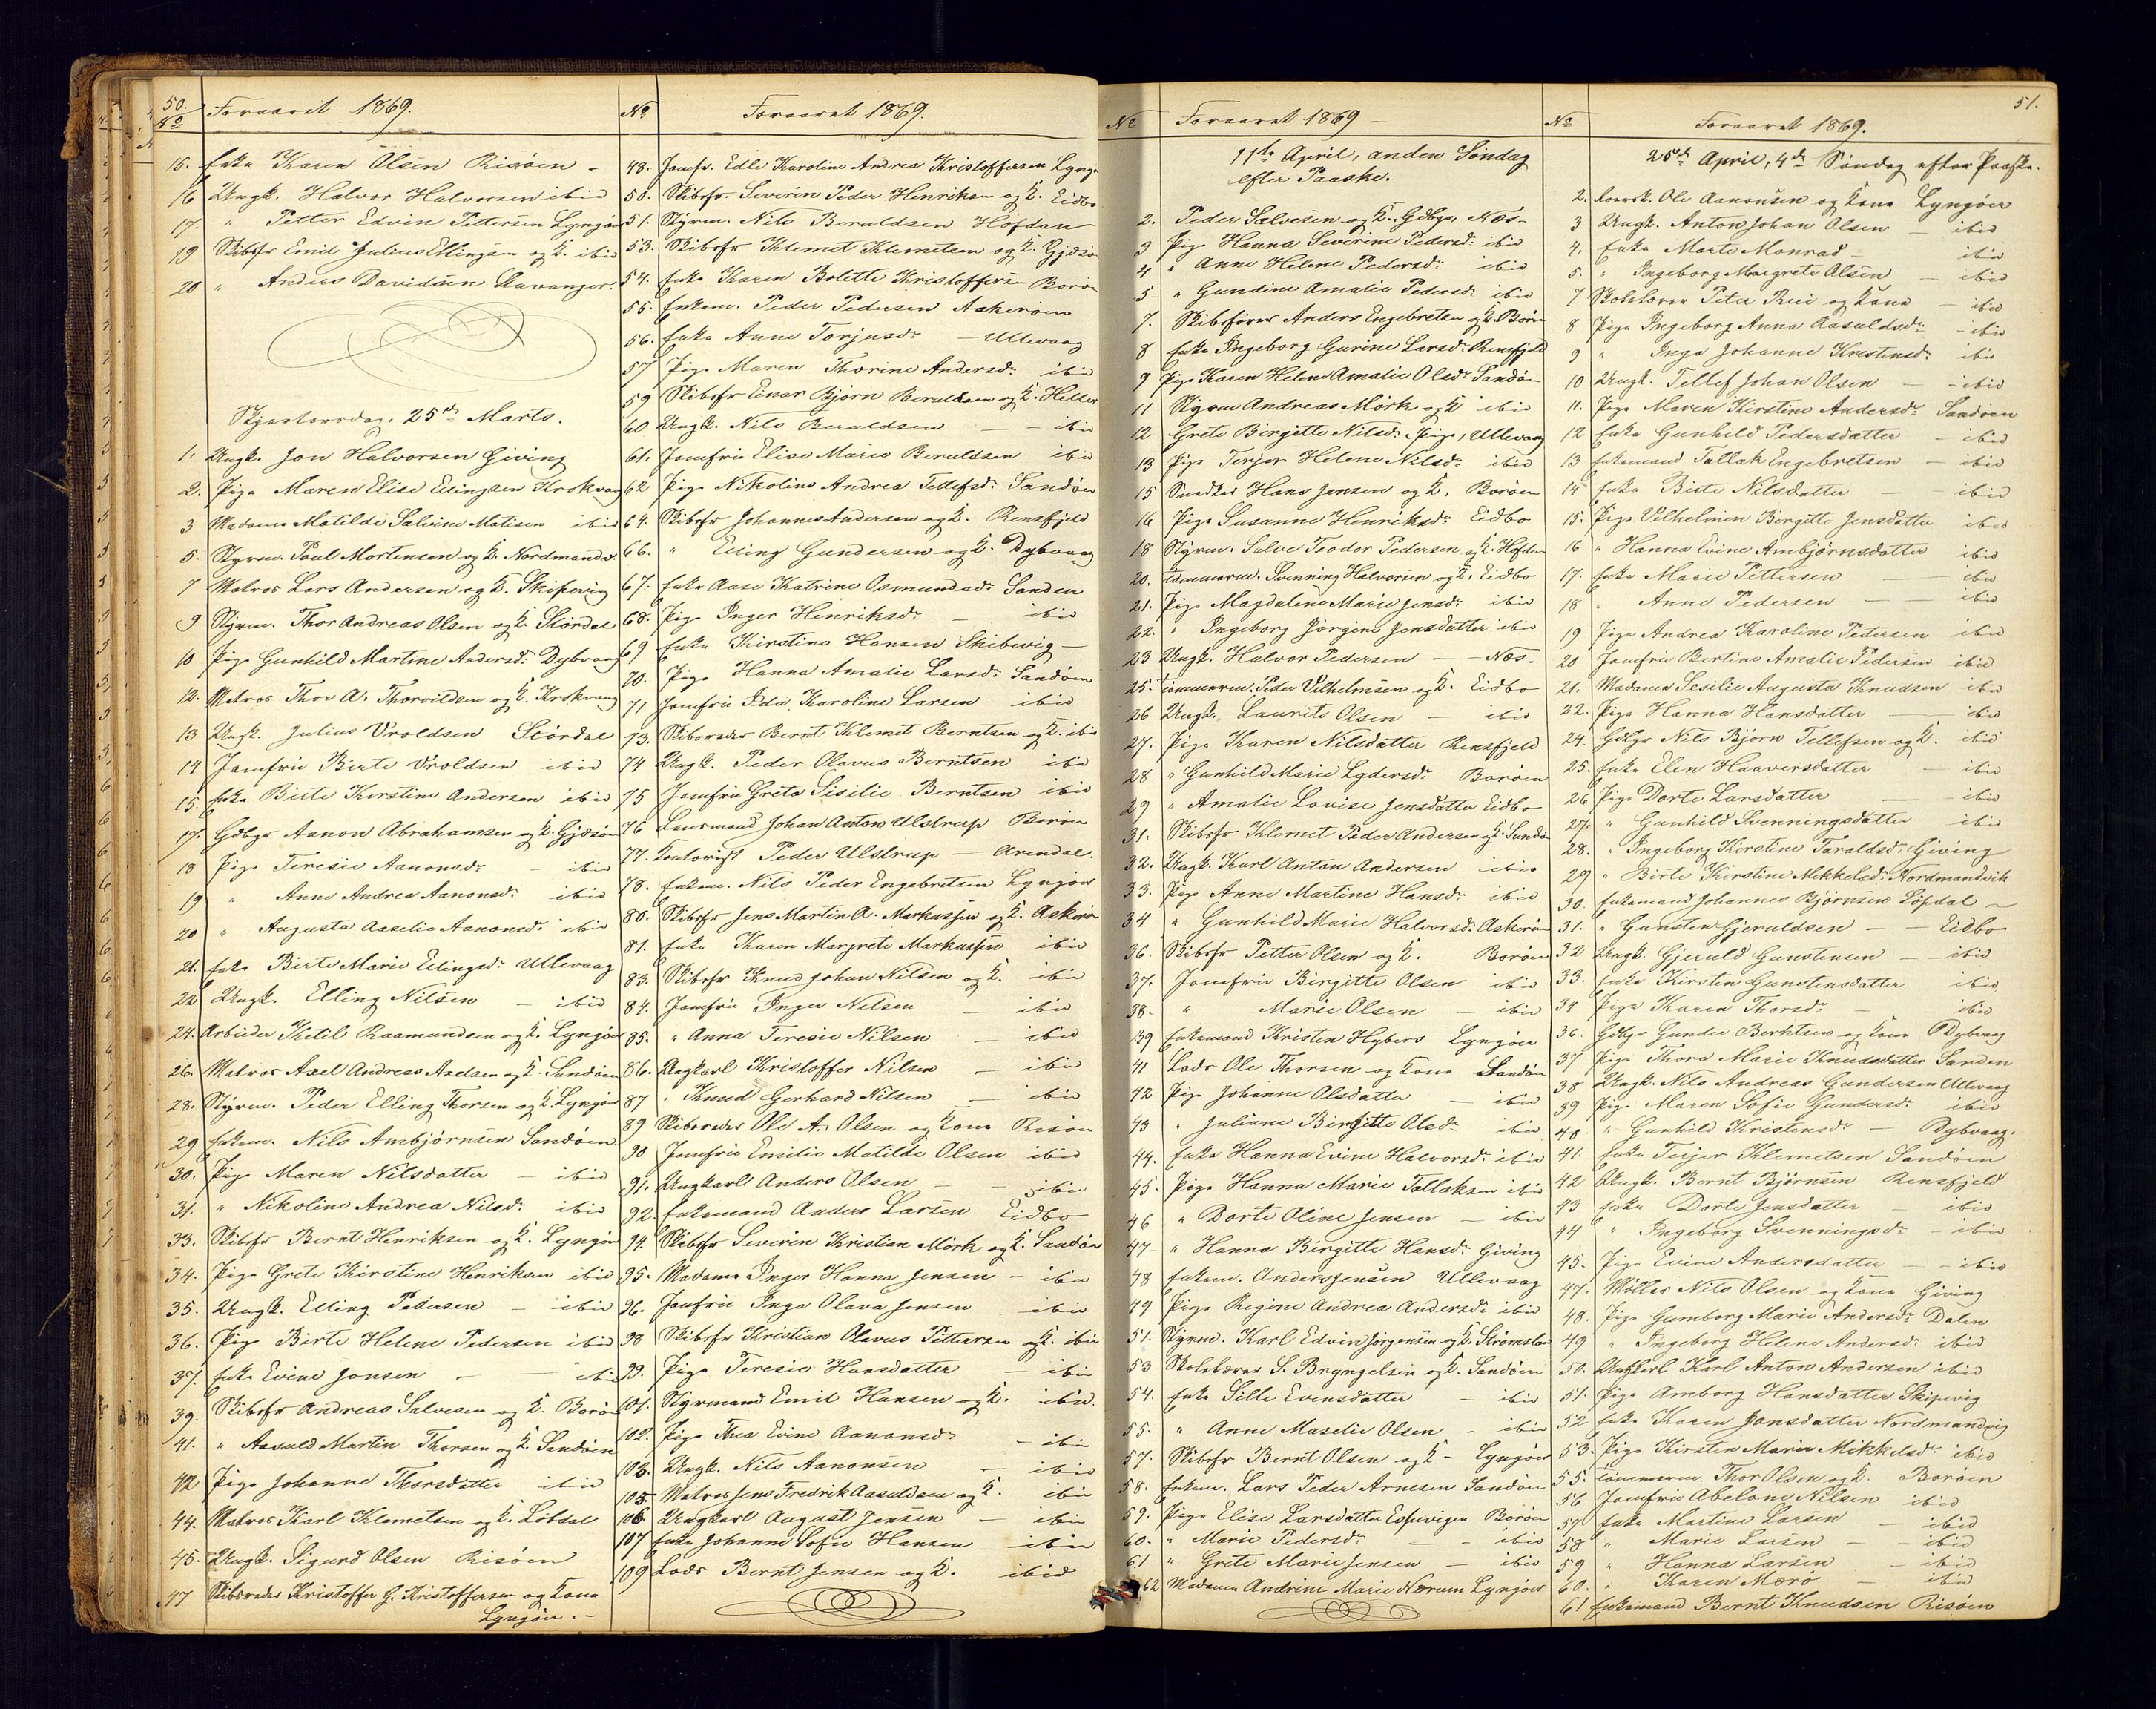 50.
No Foraaret 1869.
15. Enke Karen Olsen Risøen -
16 Ungk. Halvor Halvorsen ibid
17. " Petter Edvin Pettersen Lyngøer
19 Skibsfr Emil Julius Ellingsen og K. ibid
20 " Anders Davidsen Stavanger.
Skjærtorsdag, 25de Marts.
1. Ungk. Jon Halvorsen Giving
2. Pige Maren Elise Ellingsen Krokvaag
3 Madame Matilde Salvine Matisen ibid
5. Styrm. Poul Mortensen og K. Nordmandv.
7 Matros Lars Andersen og K. Skipevig
9 Styrm. Thor Andreas Olsen og K. Slørdal
10 Pige Gunhild Martine Andersdr. Dybvaag
12. Matros Thor A. Thorvildsen og K. Krokvaag
13 Ungk. Julius Vroldsen Slørdal
14 Jomfru Birte Vroldsen ibid
15. Enke Birte Kirstine Andersen ibid
17. Gdbgr Aanon Abrahamsen og K. Gjæsøen
18 Pige Teresie Aanonsdr - ibid
19 " Anne Andrea Aanonsdr. ibid
20 " Augusta Aaselie Aanonsdr. ibid
21. Enke Birte Marie Ellingsdr. Ullevaag
22 Ungk. Elling Nilsen - ibid
24. Arbeider Ketil Raamundsen og K. Lyngøer
26. Matros Axel Andreas Axelsen og K. Sandøen
28. Styrm. Peder Elling Thorsen og K. Lyngøer
29 Enkem. Nils Ambjørnsen Sandøen
30. Pige Maren Nilsdatter - ibid
31. " Nikoline Andrea Nilsdr. ibid
33. Skibsfr Bernt Henriksen og K. Lyngøer
34. Pige Grete Kirstine Henriksen ibid
35. Ungk. Elling Pedersen - ibid
36. Pige Birte Helene Pedersen ibid
37. Enke Evine Jonsen - - ibid
39. Skibsfr Andreas Salvesen og K. Borøen
41. " Aasuld Martin Thorsen og K. Sandøen
42 Pige Johanne Thorsdatter ibid
44. Matros Karl Klemetsen og K. Løbdal
45. Ungk. Sigurd Olsen Risøen
47 Skibsreder Kristoffer G. Kristoffersen og Kone
Lyngøer. -
No Foraaret 1869.
48. Jomfr. Edle Karoline Andrea Kristoffersen Lyngø
50. Skibsfr. Severin Peder Henriksen og K. Eidbo
51. Styrm. Nils Beruldsen Høfdan
53. Skibsfr Klemet Klemetsen og K. Gjæsø
54. Enke Karen Bolette Kristoffersen Borøen
55. Enkem. Peder Pedersen Askerøen
56. Enke Anne Torjusdr - Ullevaag
57 Pige Maren Thorine Andersdr. ibid
59 Skibsfr Einar Bjørn Beruldsen og K. Hellen
60 Ungk. Nils Beruldsen - - ibid
61. Jomfru Elise Marie Beruldsen ibid
62 Pige Nikoline Andrea Tellefsdr. Sandøen
64. Skibsfr Johannes Andersen og K. Rensfjeld
66. " Elling Gundersen og K. Dybvaag
67. Enke Aase Katrine Osmundsdr. Sanden
68. Pige Inger Henriksdr. - ibid
69 Enke Kirstine Hansen Skibevig -
70. Pige Hanna Amalie Larsdr. Sandøen
71 Jomfru Ida Karoline Larsen ibid
73. Skibsreder Bernt Klemet Berntsen og K. ibid
74 Ungk. Peder Olavus Berntsen ibid
75 Jomfru Grete Sisilie Berntsen ibid
76 Lensmand Johan Anton Ulstrup Borøen
77. Peder Ulstrup - Arendal.
78. Enkem. Nils Peder Engebretsen Lyngøer
80. Skibsfr Jens Martin A. Markussen og K. Askerøen
81. Enke Karen Margrete Markussen ibid
83. Skibsfr Knud Johan Nilsen og K. ibid
84. Jomfru Inger Nilsen - ibid
85. " Anna Teresie Nilsen - ibid
86. Ungkarl Kristoffer Nilsen - ibid
87 " Knud Gerhard Nilsen - ibid
89 Skibsreder Ole A. Olsen og Kone Risøen
90 Jomfru Emilie Matilde Olsen ibid
91. Ungkarl Anders Olsen - - ibid
92. Enkemand Anders Larsen Eidbo
94. Skibsfr Severin Kristian Mørk og K. Sandøen
95. Madame Inger Hanna Jensen - ibid
96. Jomfru Inga Olava Jensen ibid
98 Skibsfr Kristian Olavus Pettersen og K. ibid
99. Pige Teresie Hansdatter - ibid
101. Styrmand Emil Hansen og K. ibid.
102. Pige Thea Evine Aanonsdr. - ibid
103. Ungk. Nils Aanonsen - ibid
105 Matros Jens Fredrik Aasuldsen og K. ibid
106 Ungkarl August Jensen - ibid
107 Enke Johanne Sofie Hansen - ibid
109 Lods Bernt Jensen og K. ibid
No Foraaret 1869 -
11te April, anden Søndag
efter Paaske.
2. Peder Salvesen og K. Gdbgr, Næs -
3 Pige Hanna Severine Pedersdr. ibid
4 " Anne Helene Pedersdr. ibid
5 " Gundine Amalie Pedersdr. ibid
7. Skibsfører Anders Engebretsen og K. Borøen
8 Enke Ingeborg Gurine Larsdr. Rensfjeld
9 Pige Karen Helene Amalie Olsdr. Sandøen
11 Styrm Andreas Mørk og K ibid
12 Grete Birgitte Nilsdr. Pige, Ullevaag
13 Pige Terjer Helene Nilsdr. ibid
15 Snedker Hans Jensen og K. Borøen
16 Pige Susanne Henriksdr. Eidbo
18 Styrm. Salve Teodor Pedersen og K. Høfdan
20. Tømmerm. Svenning Halvorsen og K, Eidbo
21. Pige Magdalene Marie Jensdr. ibid
22. " Ingeborg Jørgine Jensdatter ibid
23 Ungk. Halvor Pedersen - - Næs -
25. Tømmerm. Peder Vilhelmsen og K. Eidbo
26 Ungk. Laurits Olsen - ibid
27. Pige Karen Nilsdatter Rensfjeld
28 " Gunhild Marie Lydersdr Borøen
29 " Amalie Lovise Jensdatter Eidbo
31. Skibsfr Klemet Peder Andersen og K. Sandøen
32. Ungk. Karl Anton Andersen ibid
33. Pige Anne Martine Hansdr. ibid
34 " Gunhild Marie Halvorsdr. Askerøen
36. Skibsfr Petter Olsen og K. Borøen
37. Jomfru Birgitte Olsen ibid
38. " Marie Olsen - ibid
39 Enkemand Kristen Hybers Lyngøer
41 Lods Ole Thorsen og Kone Sandøen
42 Pige Johanne Olsdatter - ibid
43 " Juliane Birgitte Olsdr. ibid
44. Enke Hanna Evine Halvorsdr. ibid
45. Pige Hanna Marie Tallaksen ibid
46 " Dorte Oline Jensen - ibid
47 - " Hanna Birgitte Hansdr. Giving
48 Enkem. Anders Jensen Ullevaag
49 Pige Regine Andrea Andersdr. ibid
51. Styrm. Karl Edvin Jørgensen og K. Strømslan
53 Skolelærer S. Bryngelsen og K. Sandøen
54. Enke Sille Evensdatter - ibid
55. " Anne Maselie Olsen - ibid
57. Skibsfr Bernt Olsen og K - Lyngøer
58. Enkem. Lars Peder Arnesen Sandøen
59. Pige Elise Larsdatter Espevigen Borøen
60. " Marie Pedersdr. - - ibid
61 " Grete Marie Jensen - ibid
62 Madamen Andrine Marie Nærum Lyngøer
51.
No Foraaret 1869.
25de April, 4de Søndag efter Paaske.
2. Ole Aanonsen og Kone Lyngøer
3 Ungk. Anton Johan Olsen - ibid
4. Enke Marte Monrad - ibid
5. " Ingeborg Margrete Olsen - ibid
7 Skolelærer Peter Rie og Kone - ibid
8 Pige Ingeborg Anna Aasuldsdr. - ibid
9 " Inga Johanne Kristensdr. ibid
10 Ungk. Tellef Johan Olsen - - ibid
11. Pige Maren Kirstine Andersdr. Sandøen
12 Enke Gunhild Pedersdatter - ibid
13 Enkemand Tallak Engebretsen - ibid
14 Enke Birte Nilsdatter - ibid
15. Pige Vilhelmine Birgitte Jensdatter ibid
16 " Hanna Evine Ambjørnsdatter ibid
17. Enke Marie Pettersen - ibid
18 " Anne Pedersen - ibid
19 Pige Andrea Karoline Pedersen ibid
20 Jomfru Bertine Amalie Pedersen ibid
21. Madamen Sesilie Augusta Knudsen ibid
22. Pige Hanna Hansdatter - ibid
24. Gdbgr Nils Bjørn Tellefsen og K. ibid
25. Enke Elen Haaversdatter - ibid
26 Pige Dorte Larsdatter - ibid
27. " Gunhild Svenningsdatter ibid
28. " Ingeborg Kirstine Taraldsdr. Giving
29 " Birte Kirstine Mikkelsdr. Nordmandvik
30. Enkemand Johannes Bjørnsen Løpdal -
31. " Gunsten Gjeruldsen - - Eidbo
32 Ungk. Gjeruld Gunstensen - ibid
33. Enke Kirsten Gunstensdatter ibid
34 Pige Karen Thorsdr. - ibid
36. Gdbgr Gunder Berntsen og Kone Dybvaag
37 Pige Thora Marie Knudsdatter Sanden
38 Ungk. Nils Andreas Gundersen Ullevaag
39 Pige Maren Sofie Gundersdr. ibid
40 " Gunhild Kristensdr. - Dybvaag.
41. Enke Terjer Klemetsen Sandøen
42 Ungk. Bernt Bjørnsen Rensfjeld
43 Enke Dorte Jensdatter - ibid
44 " Ingeborg Svenningsdr. - ibid
45. Pige Evine Andersdatter - ibid
47. Møller Nils Olsen og Kone Giving
48. Pige Gumborg Marie Andersdr. Dalen
49 " Ingeborg Helene Andersdr. ibid
50. Ungkarl Karl Anton Andersen ibid
51. Pige Arnborg Hansdatter Skipevig
52 Enke Karen Jonsdatter Nordmandvig
53. Pige Kirsten Marie Mikkelsdr. ibid
55. Tømmerm. Thor Olsen og K. Borøen
56 Jomfru Abelone Nilsen ibid
57 Enke Martine Larsen - ibid
58 " Marie Larsen - - ibid
59 " Hanna Larsen - ibid
60. " Karen Mærø - ibid
61 Enkemand Bernt Knudsen Risøen